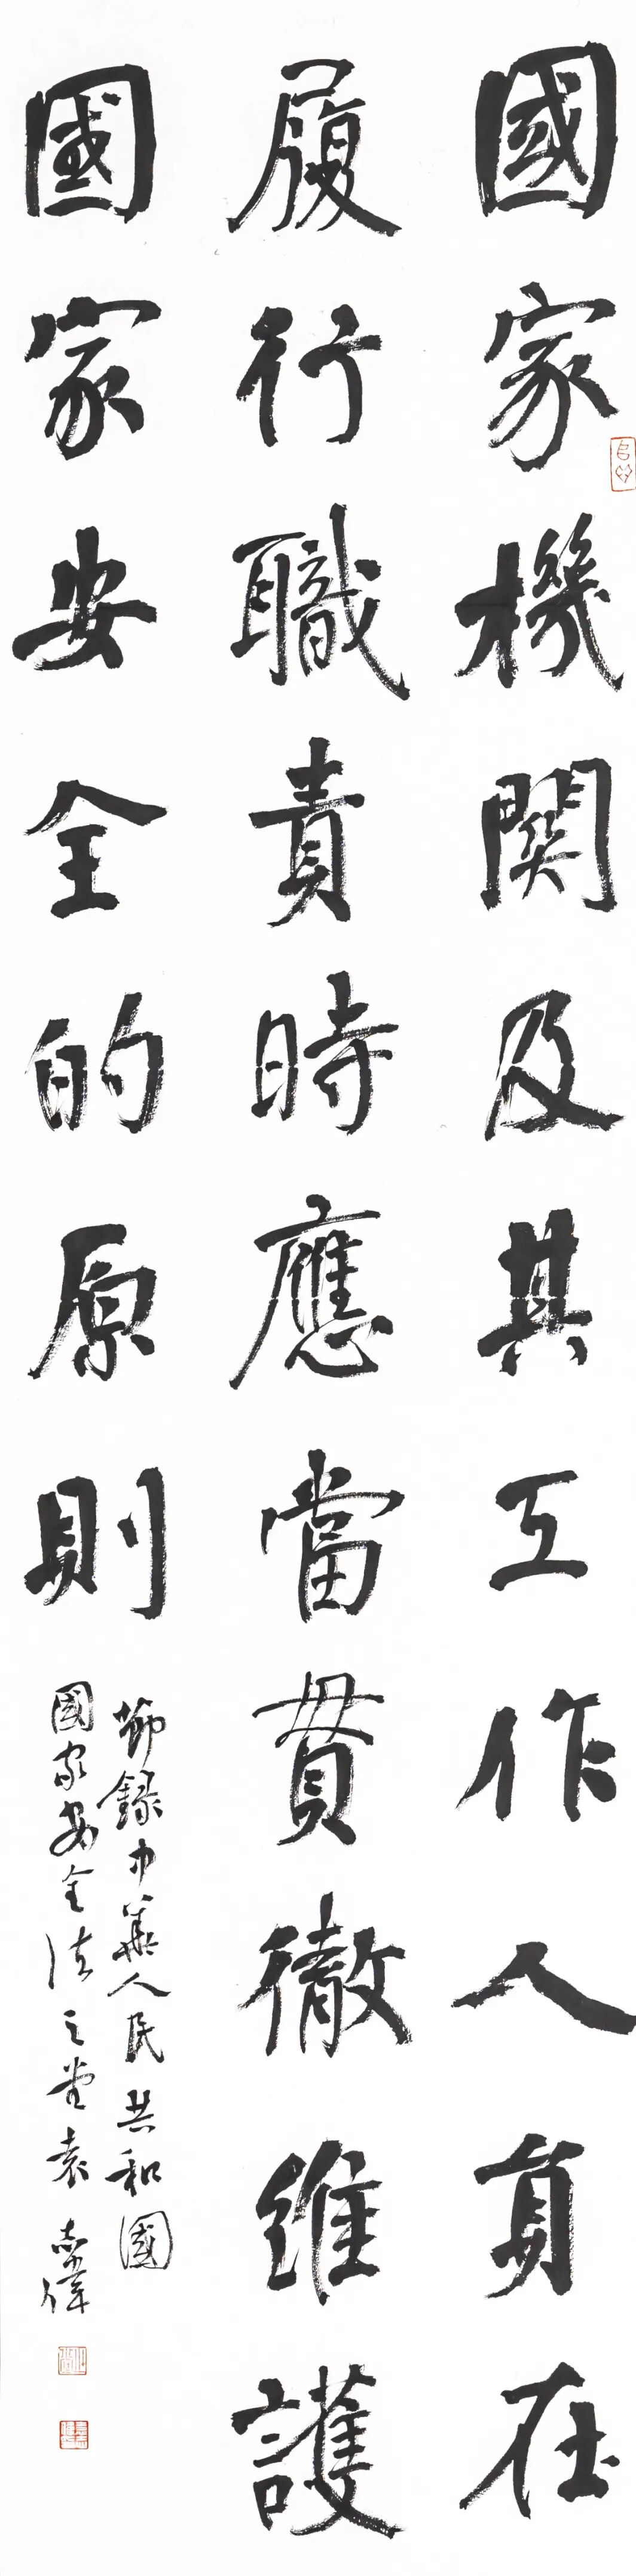 國家機關及其工作人員在
履行職責時應當貫徹維護
國家安全的原則
節錄中華人民共和國
國家安全法之堂袁志偉